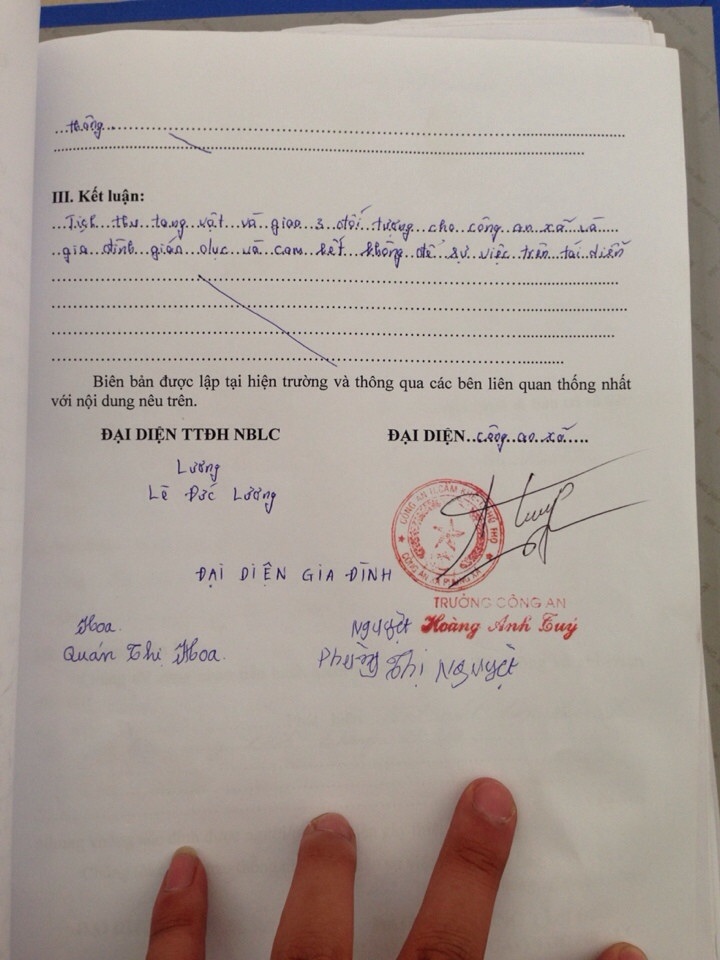 thông
III. Kết luận:
Tịch thu tang vật và giao 3 đối tượng cho công an xã và
gia đình giáo dục và cam kết không để sự việc trên tái diễn
Biên bản được lập tại hiện trường và thông qua các bên liên quan thống nhất
với nội dung nêu trên.
ĐẠI DIỆN TTĐH NBLC
ĐẠI DIỆN công an xã
Lương
Lê Đức Lương
Tuý
CÔNG AN H.CẨM KHÊ-T.PHÚ THỌ
CÔNG AN XÃ
ĐẠI DIỆN GIA ĐÌNH
TRƯỞNG CÔNG AN
Hoàng Anh Tuý
Hoa
Quán Thị Hoa
Nguyệt
Thị Nguyệt